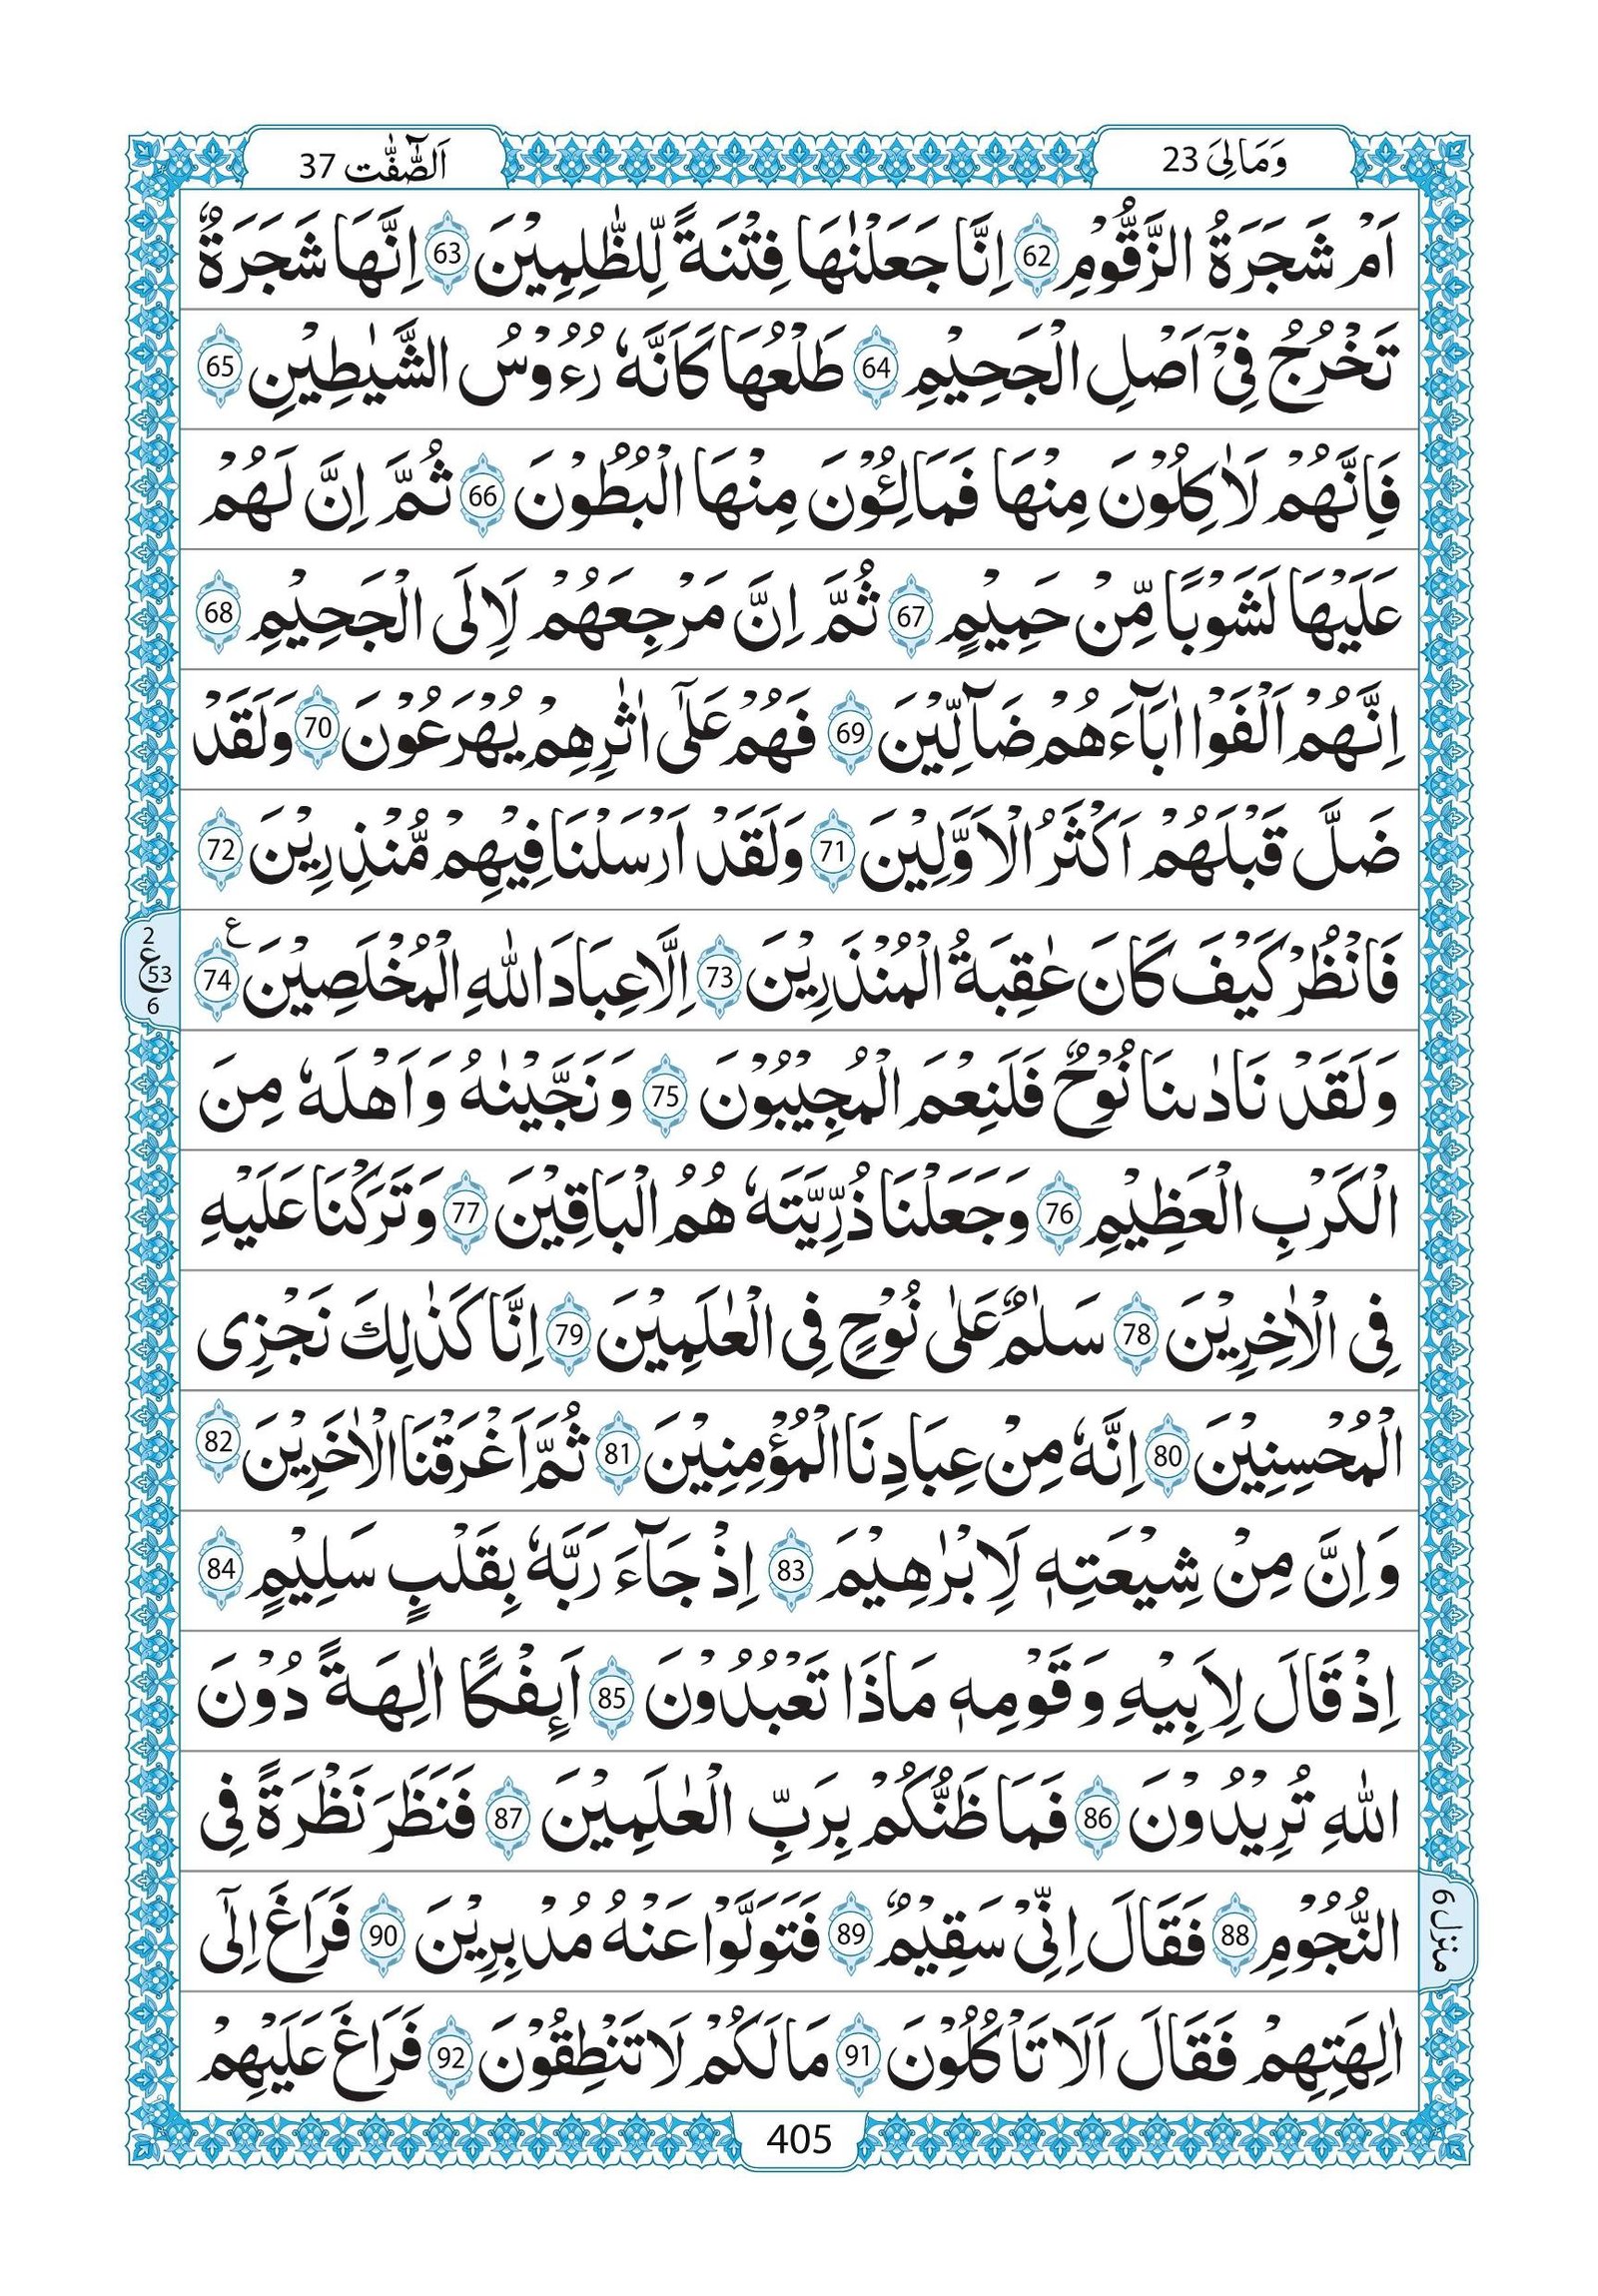 وَمَالِیَ 23
اَلصّٰٓفّٰت 37
اَمْ شَجَرَةُ الزَّقُّوْمِ 62 اِنَّا جَعَلْنٰهَا فِتْنَةً لِّلظّٰلِمِیْنَ 63 اِنَّهَا شَجَرَةٌ
تَخْرُجُ فِیْۤ اَصْلِ الْجَحِیْمِ 64 طَلْعُهَا كَاَنَّهٗ رُءُوْسُ الشَّیٰطِیْنِ 65
فَاِنَّهُمْ لَاٰكِلُوْنَ مِنْهَا فَمَالِـُٔوْنَ مِنْهَا الْبُطُوْنَ 66 ثُمَّ اِنَّ لَهُمْ
عَلَیْهَا لَشَوْبًا مِّنْ حَمِیْمٍ 67 ثُمَّ اِنَّ مَرْجِعَهُمْ لَاِلَی الْجَحِیْمِ 68
اِنَّهُمْ اَلْفَوْا اٰبَآءَهُمْ ضَآلِّیْنَ 69 فَهُمْ عَلٰۤی اٰثٰرِهِمْ یُهْرَعُوْنَ 70 وَلَقَدْ
ضَلَّ قَبْلَهُمْ اَكْثَرُ الْاَوَّلِیْنَ 71 وَلَقَدْ اَرْسَلْنَا فِیْهِمْ مُّنْذِرِیْنَ 72
فَانْظُرْ كَیْفَ كَانَ عٰقِبَةُ الْمُنْذَرِیْنَ 73 اِلَّا عِبَادَ اللّٰهِ الْمُخْلَصِیْنَ 74 ع
2 ع 53 6
وَلَقَدْ نَادٰىنَا نُوْحٌ فَلَنِعْمَ الْمُجِیْبُوْنَ 75 وَنَجَّیْنٰهُ وَاَهْلَهٗ مِنَ
الْكَرْبِ الْعَظِیْمِ 76 وَجَعَلْنَا ذُرِّیَّتَهٗ هُمُ الْبَاقِیْنَ 77 وَتَرَكْنَا عَلَیْهِ
فِی الْاٰخِرِیْنَ 78 سَلٰمٌ عَلٰی نُوْحٍ فِی الْعٰلَمِیْنَ 79 اِنَّا كَذٰلِكَ نَجْزِی
الْمُحْسِنِیْنَ 80 اِنَّهٗ مِنْ عِبَادِنَا الْمُؤْمِنِیْنَ 81 ثُمَّ اَغْرَقْنَا الْاٰخَرِیْنَ 82
وَاِنَّ مِنْ شِیْعَتِهٖ لَاِبْرٰهِیْمَ 83 اِذْ جَآءَ رَبَّهٗ بِقَلْبٍ سَلِیْمٍ 84
اِذْ قَالَ لِاَبِیْهِ وَقَوْمِهٖ مَاذَا تَعْبُدُوْنَ 85 اَىِٕفْكًا اٰلِهَةً دُوْنَ
اللّٰهِ تُرِیْدُوْنَ 86 فَمَا ظَنُّكُمْ بِرَبِّ الْعٰلَمِیْنَ 87 فَنَظَرَ نَظْرَةً فِی
النُّجُوْمِ 88 فَقَالَ اِنِّیْ سَقِیْمٌ 89 فَتَوَلَّوْا عَنْهُ مُدْبِرِیْنَ 90 فَرَاغَ اِلٰۤی
منزل 6
اٰلِهَتِهِمْ فَقَالَ اَلَا تَاْكُلُوْنَ 91 مَا لَكُمْ لَا تَنْطِقُوْنَ 92 فَرَاغَ عَلَیْهِمْ
405